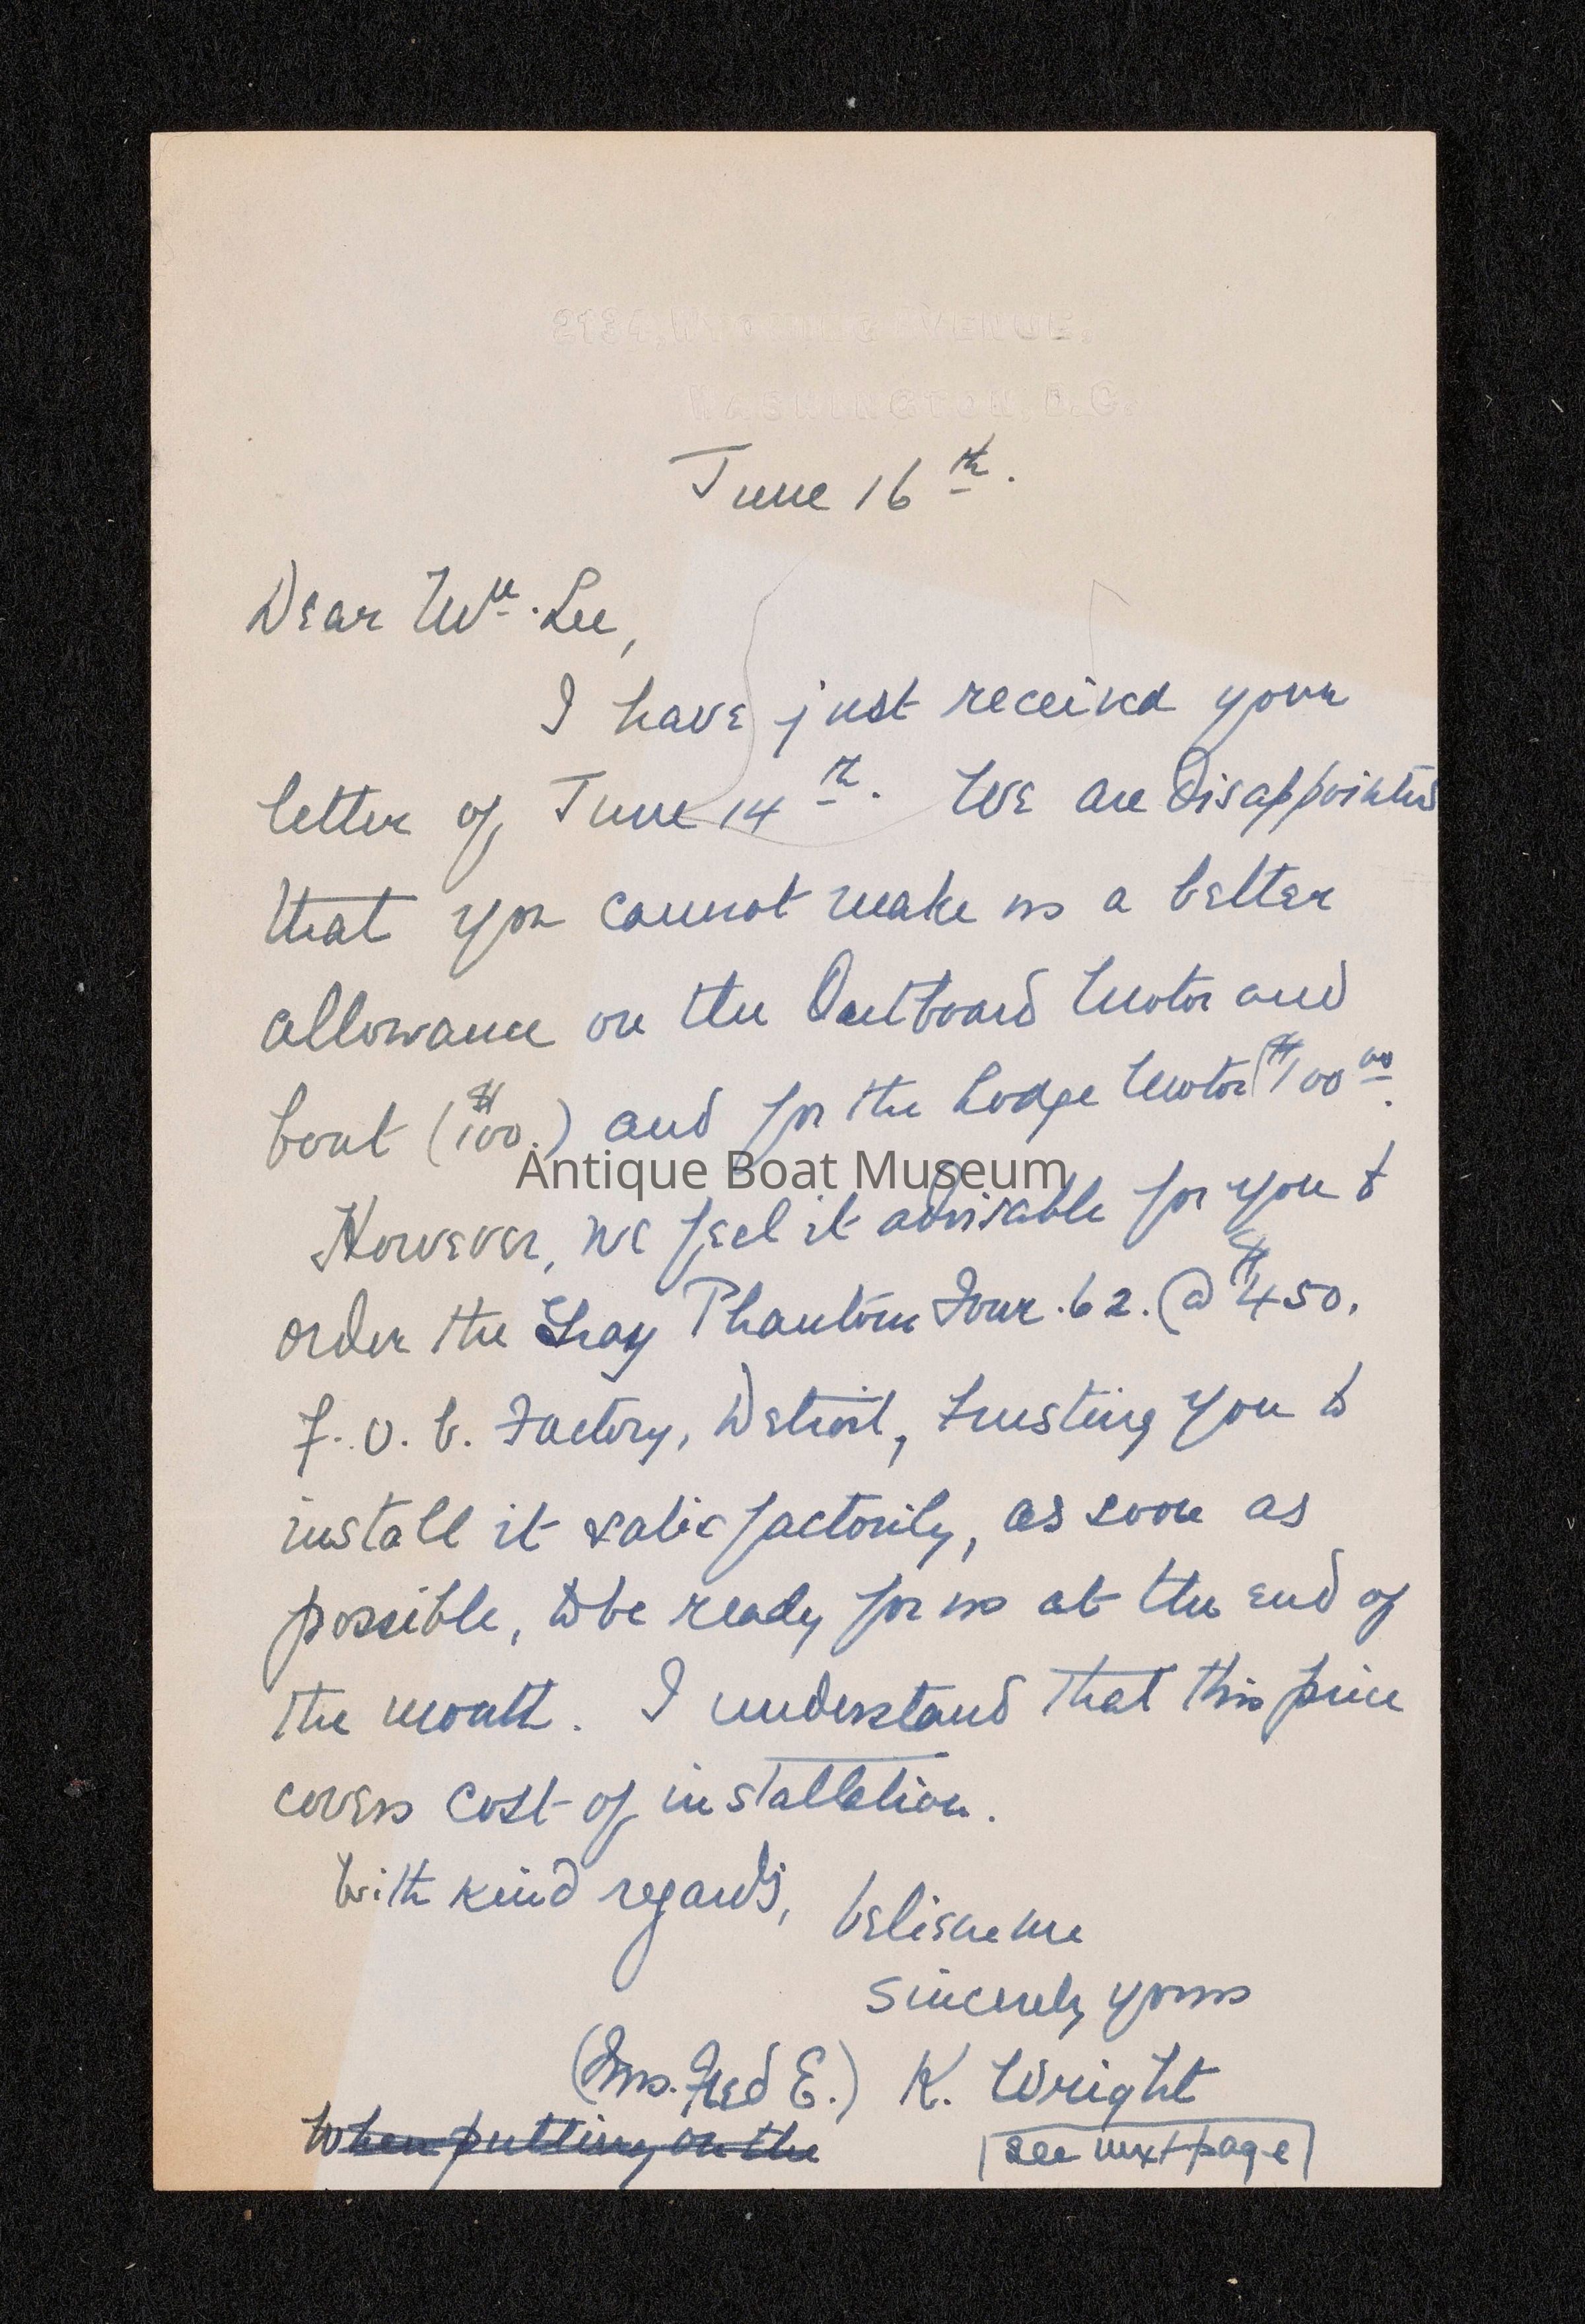 2134, WYOMING AVENUE,
WASHINGTON, D.C.
June 16th.
Dear Mr. Lee,
I have just received your
letter of June 14th. We are disappointed
that you cannot make us a better
allowance on the Outboard Motor and
boat ($100.) and for the Dodge Motor $100.00.
Antique Boat Museum
However, we feel it advisable for you to
order the Gray Phantom Four.62.@ $450.
f.o.b. Factory, Detroit, trusting you to
install it satisfactorily, as soon as
possible, to be ready for us at the end of
the month. I understand that this price
covers cost of installation.
With kind regards, believe me
Sincerely yours
(Mrs. Fred E.) K. Wright
When putting on the
see next page